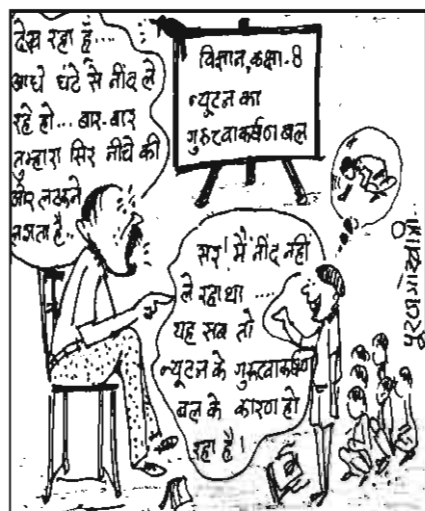 देख रहा हूँ...
आधे घंटे से नींद ले
रहे हो... बार-बार
तुम्हारा सिर नीचे की
ओर लटकने
लगता है..
विज्ञान, कक्षा-8
न्यूटन का
गुरुत्वाकर्षण बल
सर! मैं नींद नहीं
ले रहा था ....
यह सब तो
न्यूटन के गुरुत्वाकर्षण
बल के कारण हो
रहा है!